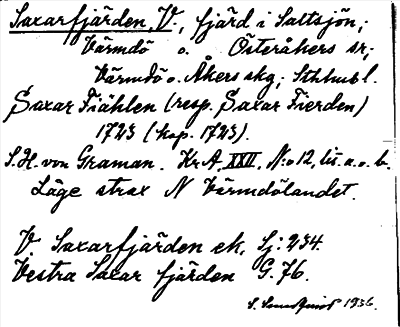 Saxarfjärden, V., fjärd i Saltsjön,;
Värmdö o. Österåkers sr,;
Värmdö o. Åkers skg,; Sthlms l.
Saxar Fiählen (resp. Saxar Fierden)
1723 (kop. 1723).
S. H. von Graman. Kr. A. XXII, N:o 12, lit. a. o. b.
Läge strax N Värmdölandet.
V Saxarfjärden ek, Sj: 234.
Västra Saxar fjärden G. 76.
S. 1936.